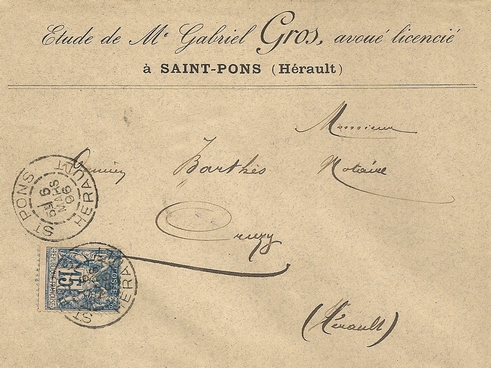 Etude de Me Gabriel Gros, avoué licencié
à SAINT-PONS (Hérault)
Monsieur
Barthès Notaire
Cruzy
(Hérault)
ST PONS
HÉRAULT
15
HÉRAULT